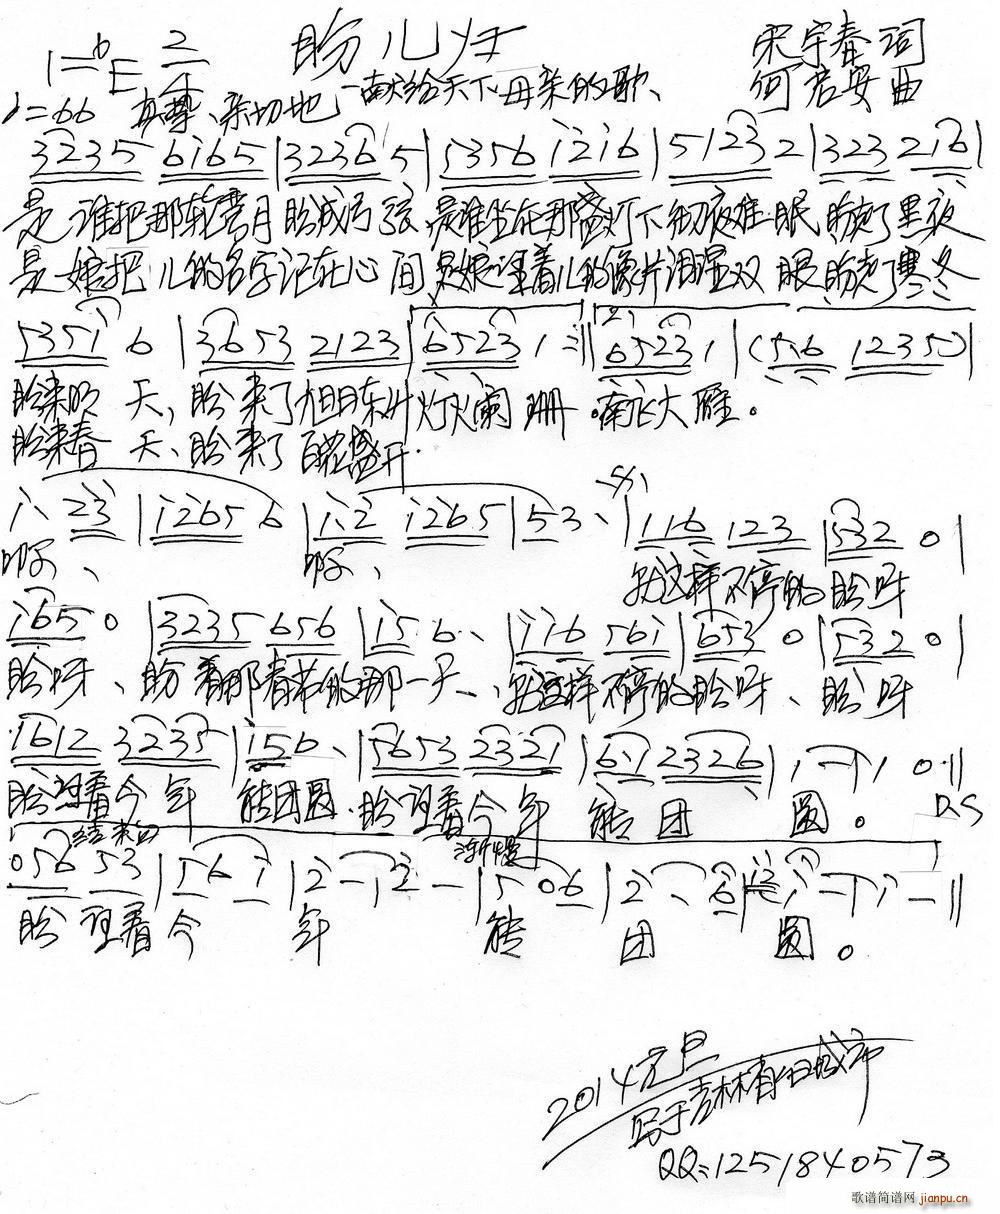 盼儿归
1=bE 2/4
宋宇春 词
何君安 曲
♩=66 真挚、亲切地
—献给天下母亲的歌、
3235 6i65 | 3236 5 | 5356 i2i6 | 5123 2 | 323 2i6 |
是谁把那轮弯月盼成弓弦 是谁坐在那盏灯下彻夜难眠 盼走了黑夜
是娘把儿的名字记在心间 是娘望着儿的像片泪湿双眼 盼走了寒冬
535i 6 | 3653 2123 | 6523 1 :|| 2、6523 1 | (5.6 1235) |
盼来明天，盼来了旭日东升 灯火阑珊。南飞大雁。
盼来春天、盼来了百花盛开.
i、23 | i265 6 | i、2 i265 | 53、| 116 123 | 532 0 |
啊、 啊、 就这样不停的盼呀
i65 0 | 3235 656 | i5 6、| ii6 56i | 653 0 | 532 0 |
盼呀、盼着那春节的那一天、就这样不停的盼呀、盼呀
i612 3235 | i56、| 5653 2321 | 6.1 2326 | 1 — | 1 0 ||
盼望着今年能团圆.盼望着今年能团圆。 D.S
结束句 渐慢
056 53 | 56 i | 2 — | 2 — | 5 06 | 2、6 | i — | i — ||
盼望着今年能团圆。
2014元旦
QQ:1251840573
歌谱简谱网 jianpu.cn